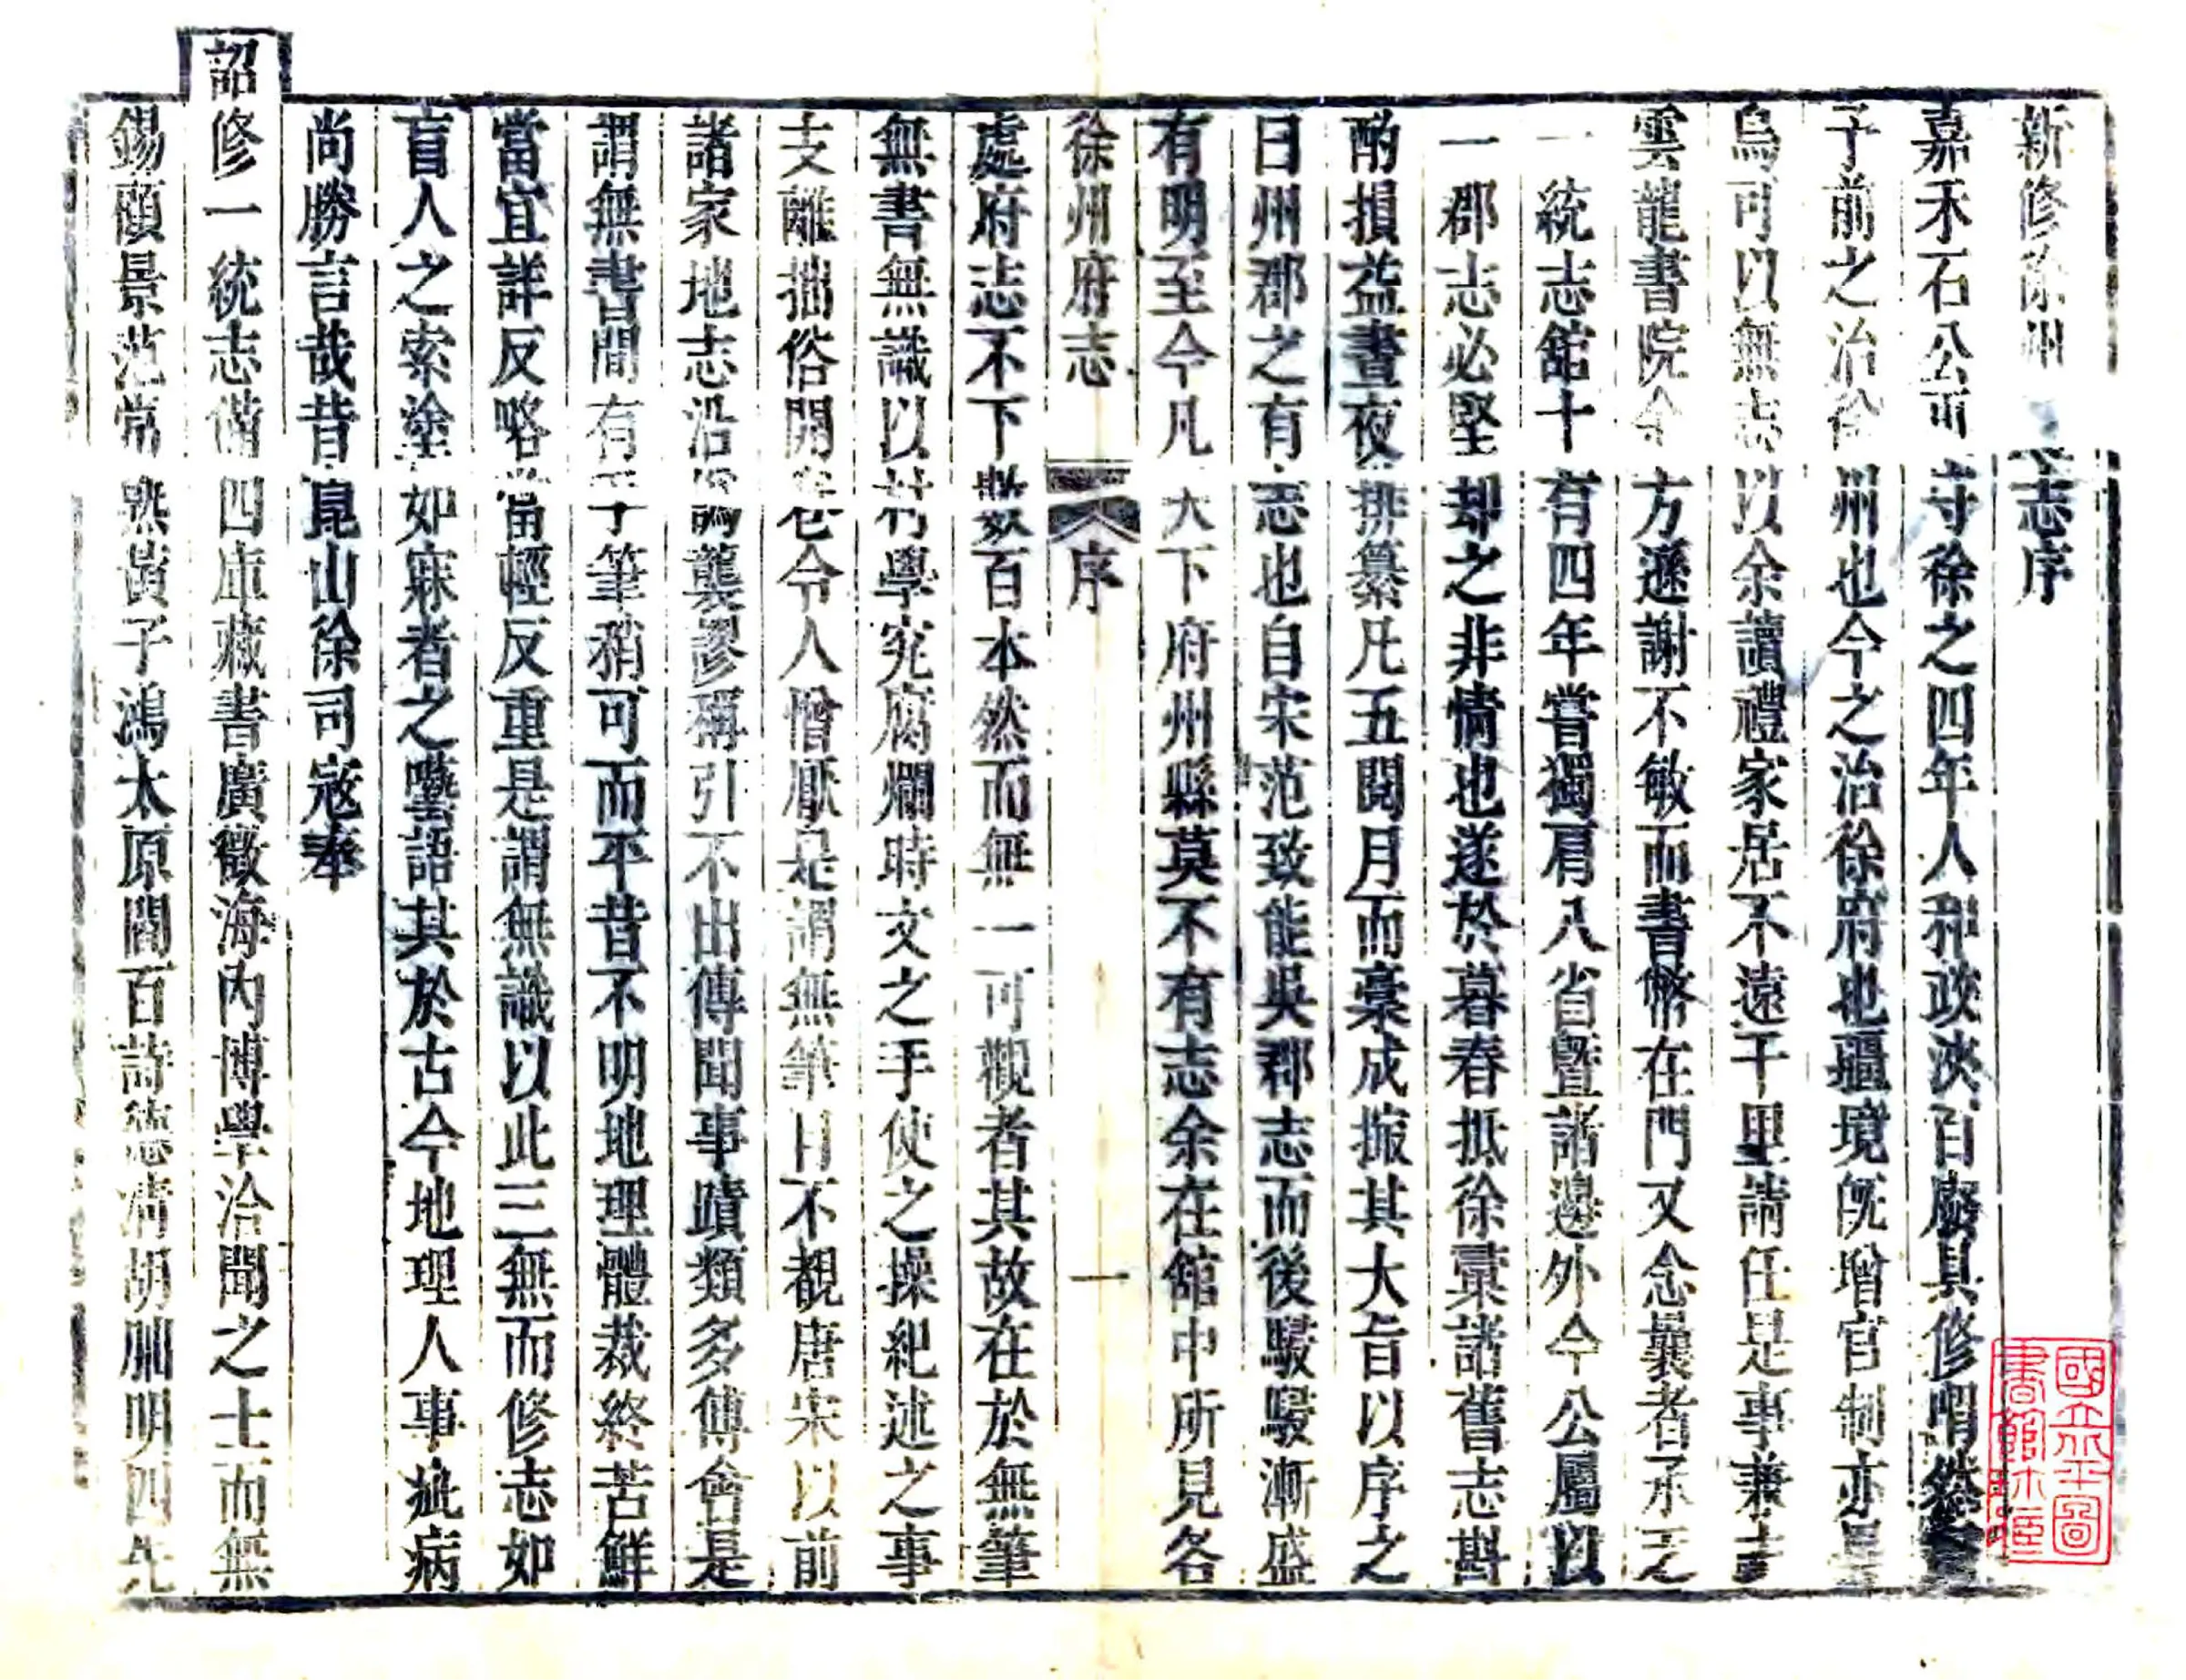 新修徐州 志序
嘉禾石公 守徐之四年人和政浹百廢具修喟然
子前之治徐州也今之治徐府也疆境旣增官制亦
烏可以無志以余讀禮家居不遠千里請任是事兼主
雲龍書院余方遜謝不敏而書幣在門又念曩者承乏
一統志館十有四年嘗獨肩八省暨諸邊外今公屬以
一郡志必堅却之非情也遂於暮春抵徐稾諸舊志斟
酌損益晝夜排纂凡五閱月而稾成掇其大旨以序之
曰州郡之有志也自宋范致能吳郡志而後駸駸漸盛
有明至今凡天下府州縣莫不有志余在館中所見各
徐州府志 序 一
處府志不下數百本然而無一可觀者其故在於無筆
無書無識以村學究腐爛時文之手使之操紀述之事
支離拙俗開卷令人憎厭是謂無筆目不覩唐宋以前
諸家地志沿訛襲謬稱引不出傳聞事蹟類多傅會是
謂無書間有一二手筆稍可而平昔不明地理體裁終苦鮮
當宜詳反略當輕反重是謂無識以此三無而修志如
盲人之索塗如寐者之囈語其於古今地理人事疵病
尚勝言哉昔崑山徐司寇奉
詔修一統志備四庫藏書廣徵海內博學洽聞之士而無
錫顧景范常熟黃子鴻太原閻百詩德清胡朏明四先
國立北平圖書館珍藏